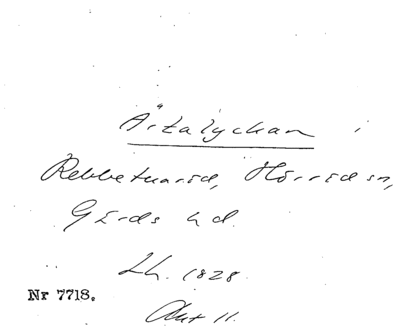 Ärtalyckan i
Rebbetuaröd, Hörröds sn,
Gärds hd.
Lh. 1828.
Nr 7718.
Akt 11.